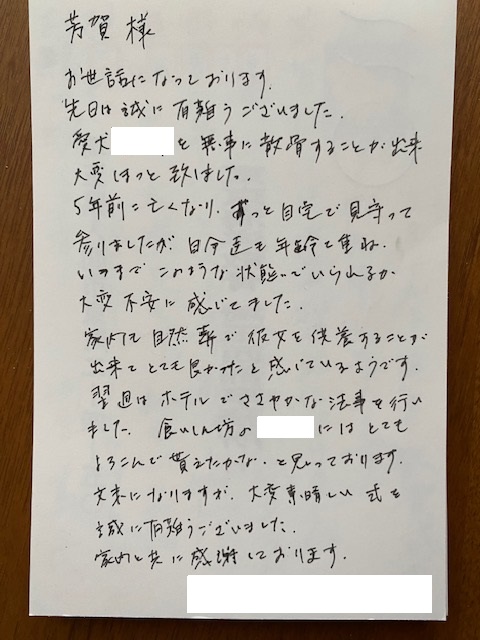 芳賀様
お世話になっております。
先日は誠に有難うございました。
愛犬 を無事に散骨することが出来
大変ほっと致しました。
5年前に亡くなり、ずっと自宅で見守って
参りましたが自分達も年齢を重ね、
いつまでこのような状態でいられるか
大変不安に感じてました。
家内も自然葬で彼女を供養することが
出来てとても良かったと感じているようです。
翌週はホテルでささやかな法事を行い
ました。食いしん坊の には とても
よろこんで貰えたかな、と思っております。
文末になりますが、大変素晴しい式を
誠に有難うございました。
家内と共に感謝しております。